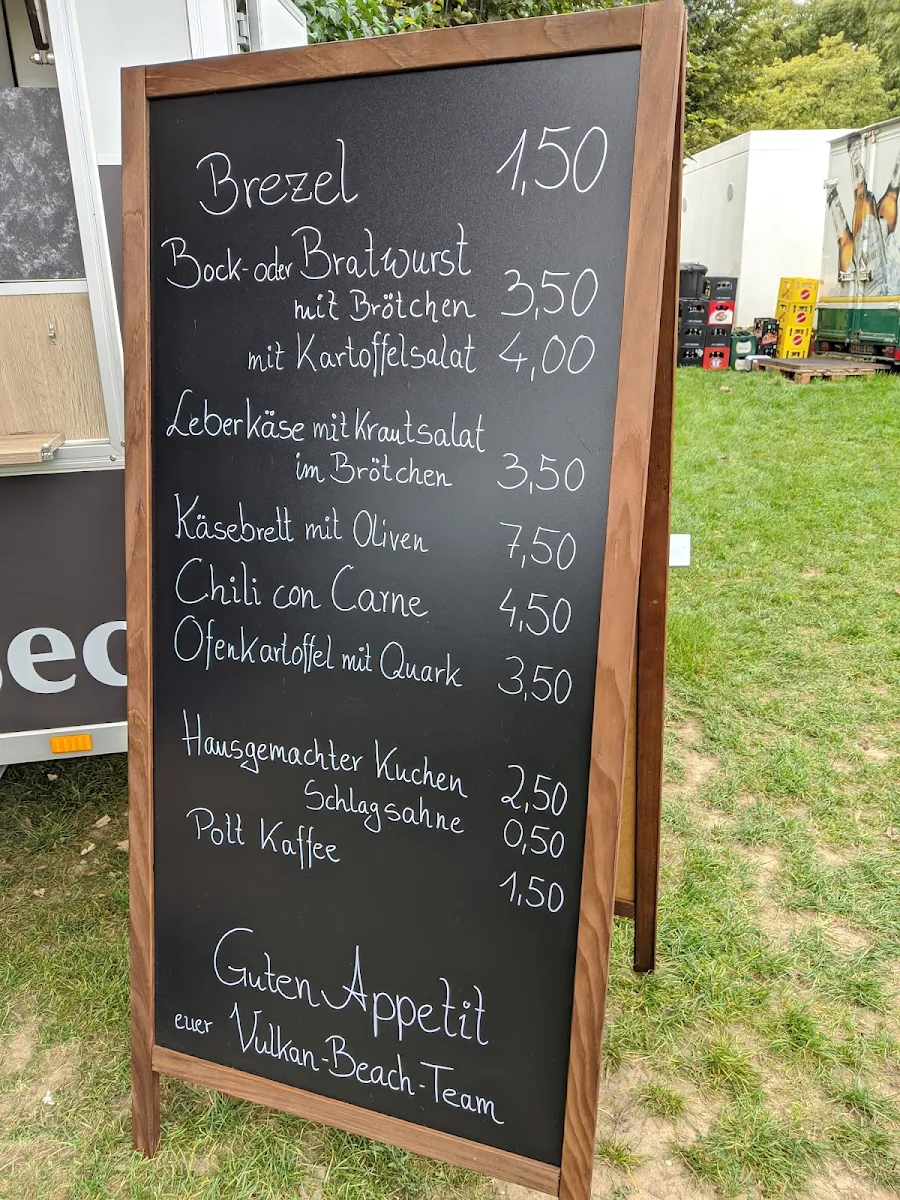 Brezel 1,50
Bock- oder Bratwurst
mit Brötchen 3,50
mit Kartoffelsalat 4,00
Leberkäse mit Krautsalat
im Brötchen 3,50
Käsebrett mit Oliven 7,50
Chili con Carne 4,50
Ofenkartoffel mit Quark 3,50
Hausgemachter Kuchen 2,50
Schlagsahne 0,50
Pott Kaffee 1,50
Guten Appetit
euer Vulkan-Beach-Team